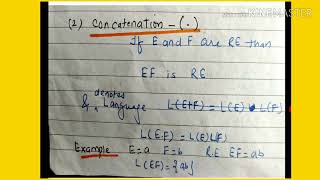 Made with
KINEMASTER
(2) Concatenation - (·)
If E and F are RE than
EF is RE
& denotes Language L(E+F) = L(E) L(F)
L(E.F) = L(E)L(F)
Example E=a F=b R.E EF=ab
L(EF)={ab}